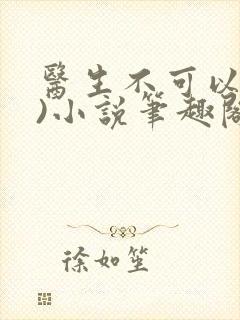 醫生不可以
)小說筆趣閣
徐如笙